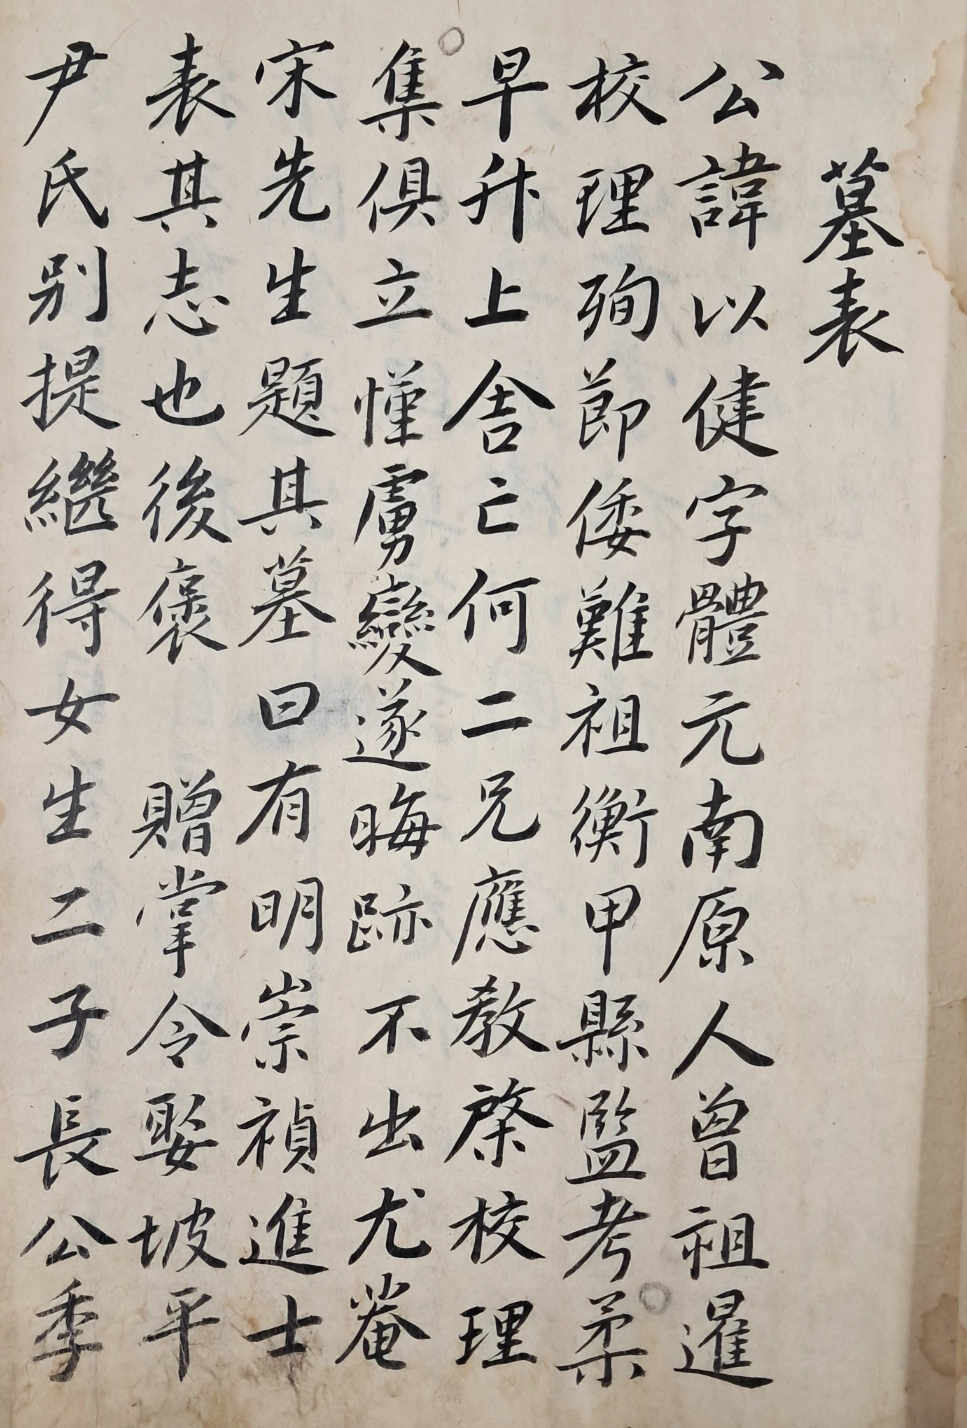 墓表
公諱以健字體元南原人曾祖暹
校理殉節倭難祖衡甲縣監考柔
早升上舍亡何二兄應教棨校理
集俱立慬虜變遂晦跡不出尤菴
宋先生題其墓曰有明崇禎進士
表其志也後褒 贈掌令娶坡平
尹氏別提繼得女生二子長公季